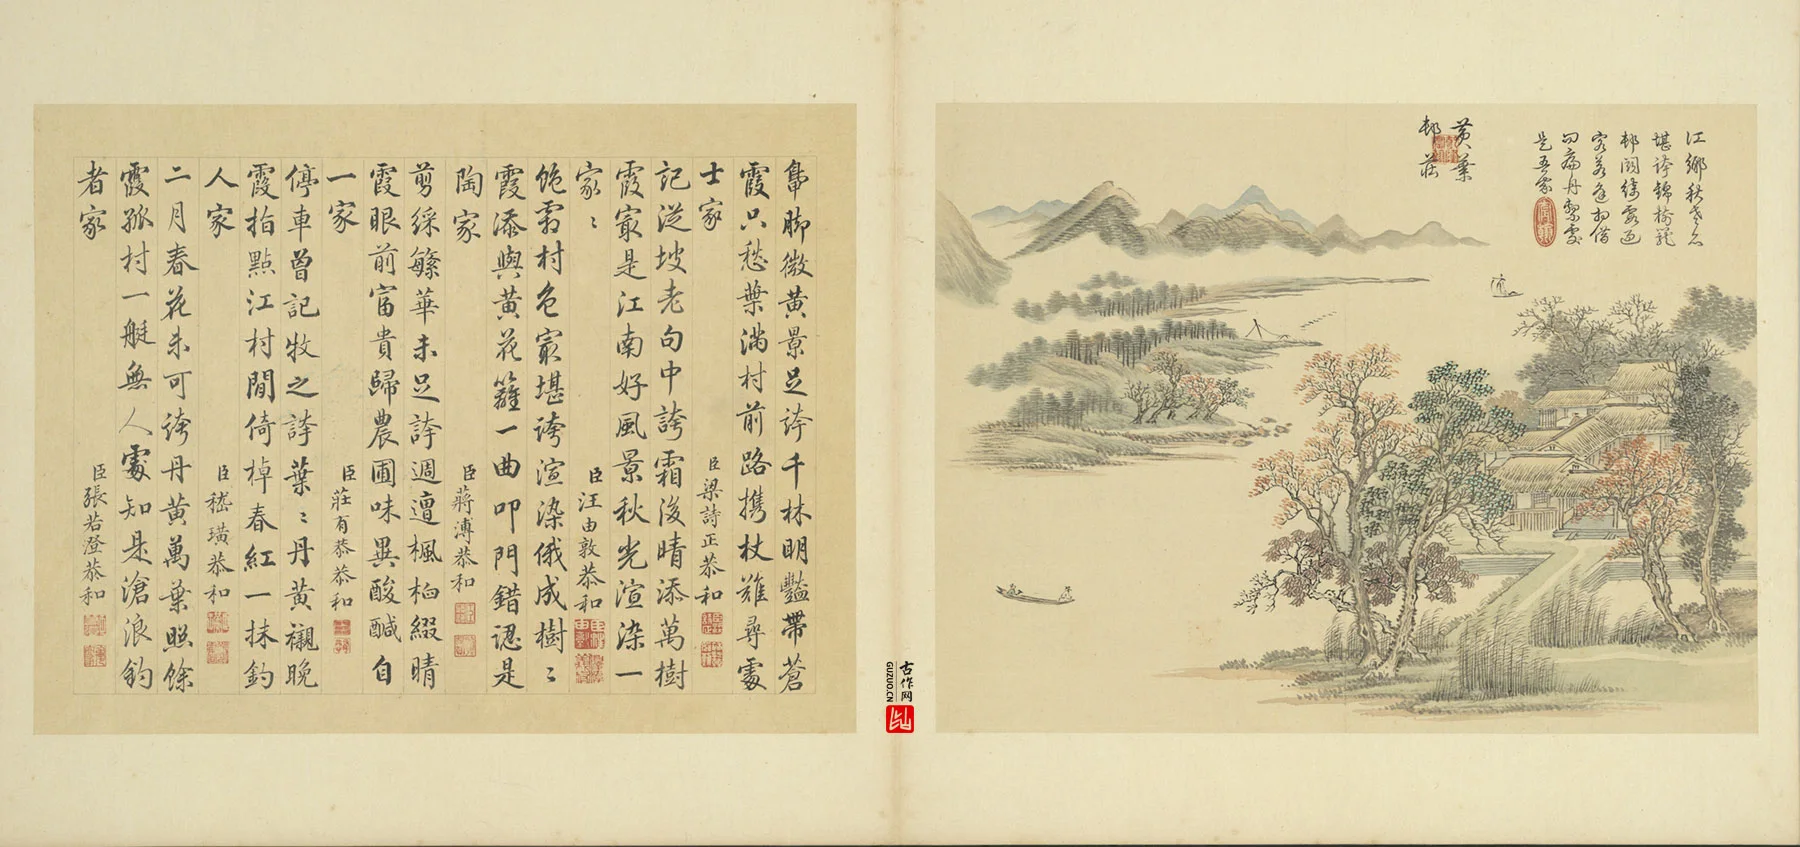 江鄉秋老
堪誇錦樹籠
邨閟綺霞過
客若逢相借
問丹黎處
是吾家
黃葉
邨莊
鳧脚微黃景足誇千林明豔帶蒼
霞只愁葉滿村前路攜杖難尋處
士家
臣梁詩正恭和
記從坡老句中誇霜後晴添萬樹
霞最是江南好風景秋光渲染一
家〻
臣汪由敦恭和
飽霜村色最堪誇渲染俄成樹〻
霞添與黃花籬一曲叩門錯認是
陶家
臣蔣溥恭和
剪綵繁華未足誇週遭楓桕綴晴
霞眼前富貴歸農圃味異酸醎自
一家
臣莊有恭恭和
停車曾記牧之誇葉〻丹黃襯晚
霞指點江村閒倚棹春紅一抹釣
人家
臣嵇璜恭和
二月春花未可誇丹黃萬葉照餘
霞孤村一艇無人處知是滄浪釣
者家
臣張若澄恭和
古作网
GUZUO.CN